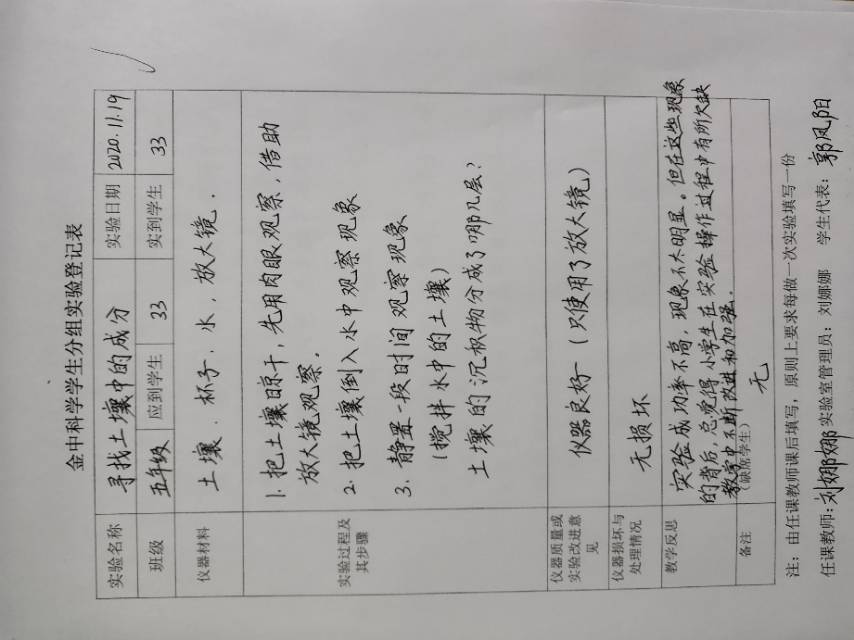 金中科学学生分组实验登记表
实验名称 寻找土壤中的成分 实验日期 2020.11.19
班级 五年级 应到学生 33 实到学生 33
仪器材料 土壤、杯子、水、放大镜.
实验过程及其步骤
1. 把土壤晾干，先用肉眼观察，借助
放大镜观察。
2. 把土壤倒入水中观察现象
3. 静置一段时间观察现象
(搅拌水中的土壤)
土壤的沉积物分成了哪几层?
仪器质量或实验改进意见 仪器良好 (只使用了放大镜)
仪器损坏与处理情况 无损坏
教学反思 实验成功率不高，现象不太明显。但在这些现象
的背后，总觉得小学生在实验操作过程中有所欠缺
教学中不断改进和加强.
备注 (缺席学生) 无
注：由任课教师课后填写，原则上要求每做一次实验填写一份
任课教师: 刘娜娜 实验室管理员: 刘娜娜 学生代表: 郭凤阳